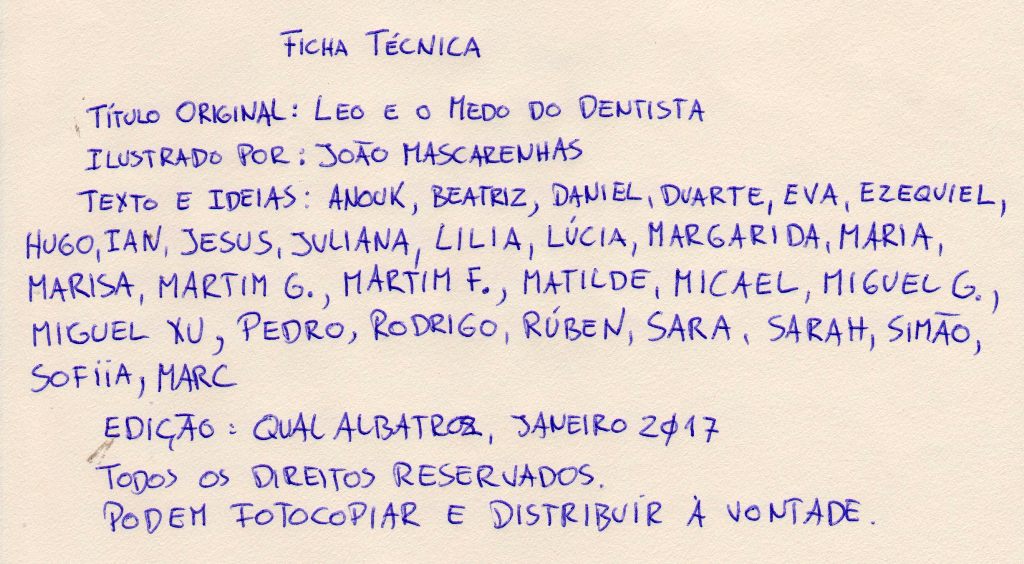 FICHA TÉCNICA
TÍTULO ORIGINAL: LEO E O MEDO DO DENTISTA
ILUSTRADO POR: JOÃO MASCARENHAS
TEXTO E IDEIAS: ANOUK, BEATRIZ, DANIEL, DUARTE, EVA, EZEQUIEL,
HUGO, IAN, JESUS, JULIANA, LILIA, LÚCIA, MARGARIDA, MARIA,
MARISA, MARTIM G., MARTIM F., MATILDE, MICAEL, MIGUEL G.,
MIGUEL XU, PEDRO, RODRIGO, RÚBEN, SARA, SARAH, SIMÃO,
SOFIIA, MARC
EDIÇÃO: QUAL ALBATROZ, JANEIRO 2017
TODOS OS DIREITOS RESERVADOS.
PODEM FOTOCOPIAR E DISTRIBUIR À VONTADE.